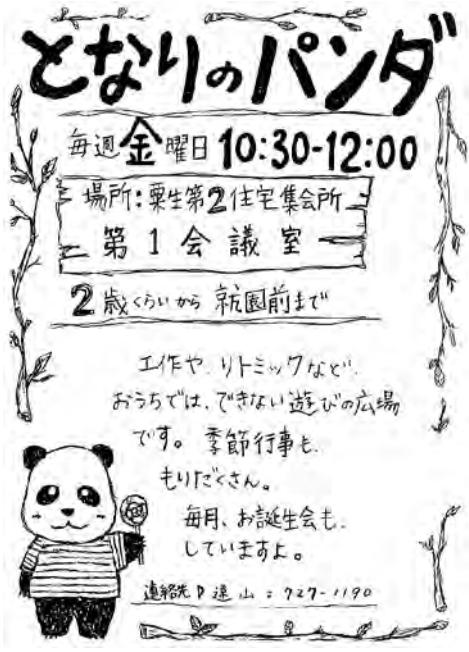 となりのパンダ
毎週金曜日 10:30-12:00
場所:粟生第2住宅集会所
第1会議室
2歳くらいから 就園前まで
工作や、リトミックなど、
おうちでは、できない遊びの広場
です。季節行事も、
もりだくさん。
毎月、お誕生会も、
していますよ。
連絡先 遠山:727-1190